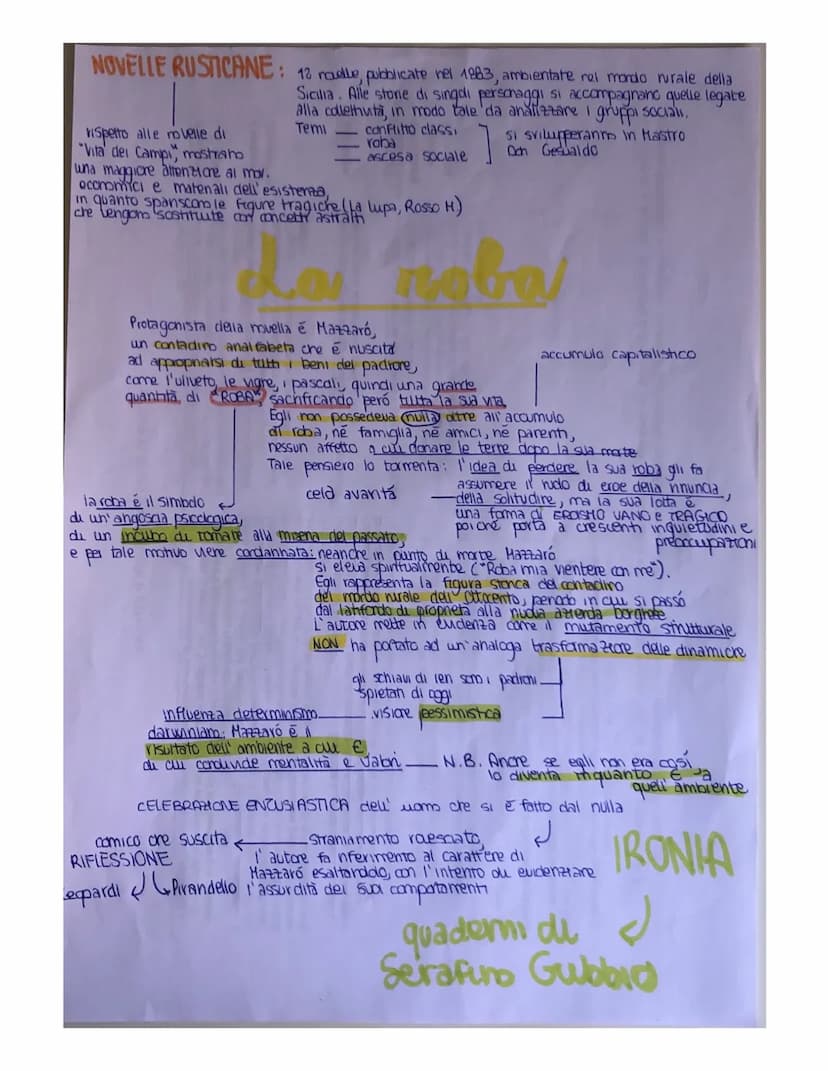 NOVELLE RUSTICANE: 12 novelle, pubblicate nel 1883, ambientate nel mondo rurale della
Sicilia. Alle storie di singoli personaggi si accompagnano quelle legate
alla collettività, in modo tale da analizzare i gruppi sociali.
Temi — conflitto classi
— roba
— ascesa sociale
si svilupperanno in Mastro
Don Gesualdo
rispetto alle novelle di
"Vita dei Campi", mostrano
una maggiore attenzione ai mov.
economici e materiali dell'esistenza,
in quanto spariscono le figure tragiche (La Lupa, Rosso M)
che vengono sostituite con concetti astratti
La roba
Protagonista della novella é Mazzaró,
un contadino analfabeta che é riuscito
ad appropriarsi di tutti i beni del padrone,
come l'uliveto, le vigne, i pascoli, quindi una grande
quantità di "ROBA", sacrificando peró tutta la sua vita
accumulo capitalistico
Egli non possedeva nulla oltre all'accumulo
di roba, né famiglia, né amici, né parenti,
nessun affetto a cui donare le terre dopo la sua morte
Tale pensiero lo tormenta: l'idea di perdere la sua roba gli fa
assumere il ruolo di eroe della rinuncia,
della solitudine, ma la sua lotta é
una forma di EROISMO VANO E TRAGICO
poiché porta a crescenti inquietudini e
preoccupazioni
cela avarità
la roba é il simbolo
di un'angoscia psicologica,
di un incubo di tornare alla miseria del passato
e per tale motivo viene condannata: neanche in punto di morte Mazzaró
si eleva spiritualmente ("Roba mia vientene con me").
Egli rappresenta la figura storica del contadino
del mondo rurale dell'Ottocento, periodo in cui si passó
dal latifondo di proprietà alla nuova azienda borghese
L'autore mette in evidenza come il mutamento strutturale
NON ha portato ad un'analoga trasformazione delle dinamiche
gli schiavi di ieri sono i padroni
spietati di oggi
visione pessimistica
influenza determinismo
darwiniano: Mazzaró é il
risultato dell'ambiente a cui É
di cui condivide mentalità e valori — N.B. Anche se egli non era cosí
lo diventa inquanto É
quell'ambiente
CELEBRAZIONE ENTUSIASTICA dell'uomo che si É fatto dal nulla
comico che suscita
RIFLESSIONE
Leopardi
Pirandello
Straniamento rovesciato,
l'autore fa riferimento al carattere di
Mazzaró esaltandolo, con l'intento di evidenziare
l'assurdità dei suoi comportamenti
IRONIA
quaderni di
Serafino Gubbio